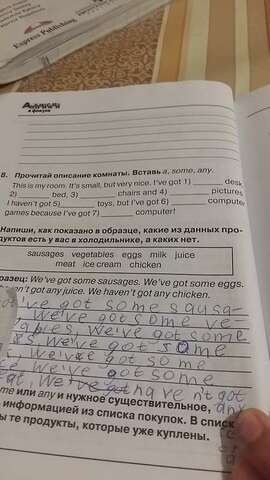 Express Publishing
Английский
в фокусе
8. Прочитай описание комнаты. Вставь a, some, any.
This is my room. It's small, but very nice. I've got 1) ______ desk
2) ______ bed, 3) ______ chairs and 4) ______ pictures
I haven't got 5) ______ toys, but I've got 6) ______ compute
games because I've got 7) ______ computer!
Напиши, как показано в образце, какие из данных про-
дуктов есть у вас в холодильнике, а каких нет.
sausages vegetables eggs milk juice
meat ice cream chicken
разец: We've got some sausages. We've got some eggs.
n't got any juice. We haven't got any chicken.
've got some sausa-
We've got some ve-
bles, We've got some
s We've got some
We've got some
We've got some
at, We've got hav n't got
any
me или any и нужное существительное,
информацией из списка покупок. В списк
ы те продукты, которые уже куплены.